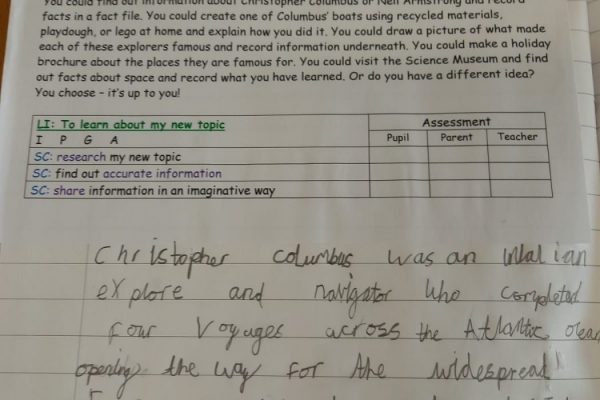 You could find out information about Christopher Columbus or Neil Armstrong and record
facts in a fact file. You could create one of Columbus' boats using recycled materials,
playdough, or lego at home and explain how you did it. You could draw a picture of what made
each of these explorers famous and record information underneath. You could make a holiday
brochure about the places they are famous for. You could visit the Science Museum and find
out facts about space and record what you have learned. Or do you have a different idea?
You choose – it's up to you!
LI: To learn about my new topic
I P G A
Assessment
Pupil Parent Teacher
SC: research my new topic
SC: find out accurate information
SC: share information in an imaginative way
Christopher columbus was an
explore and navigator who completed
four Voyages across the Atlantic
opening the way for the widespread